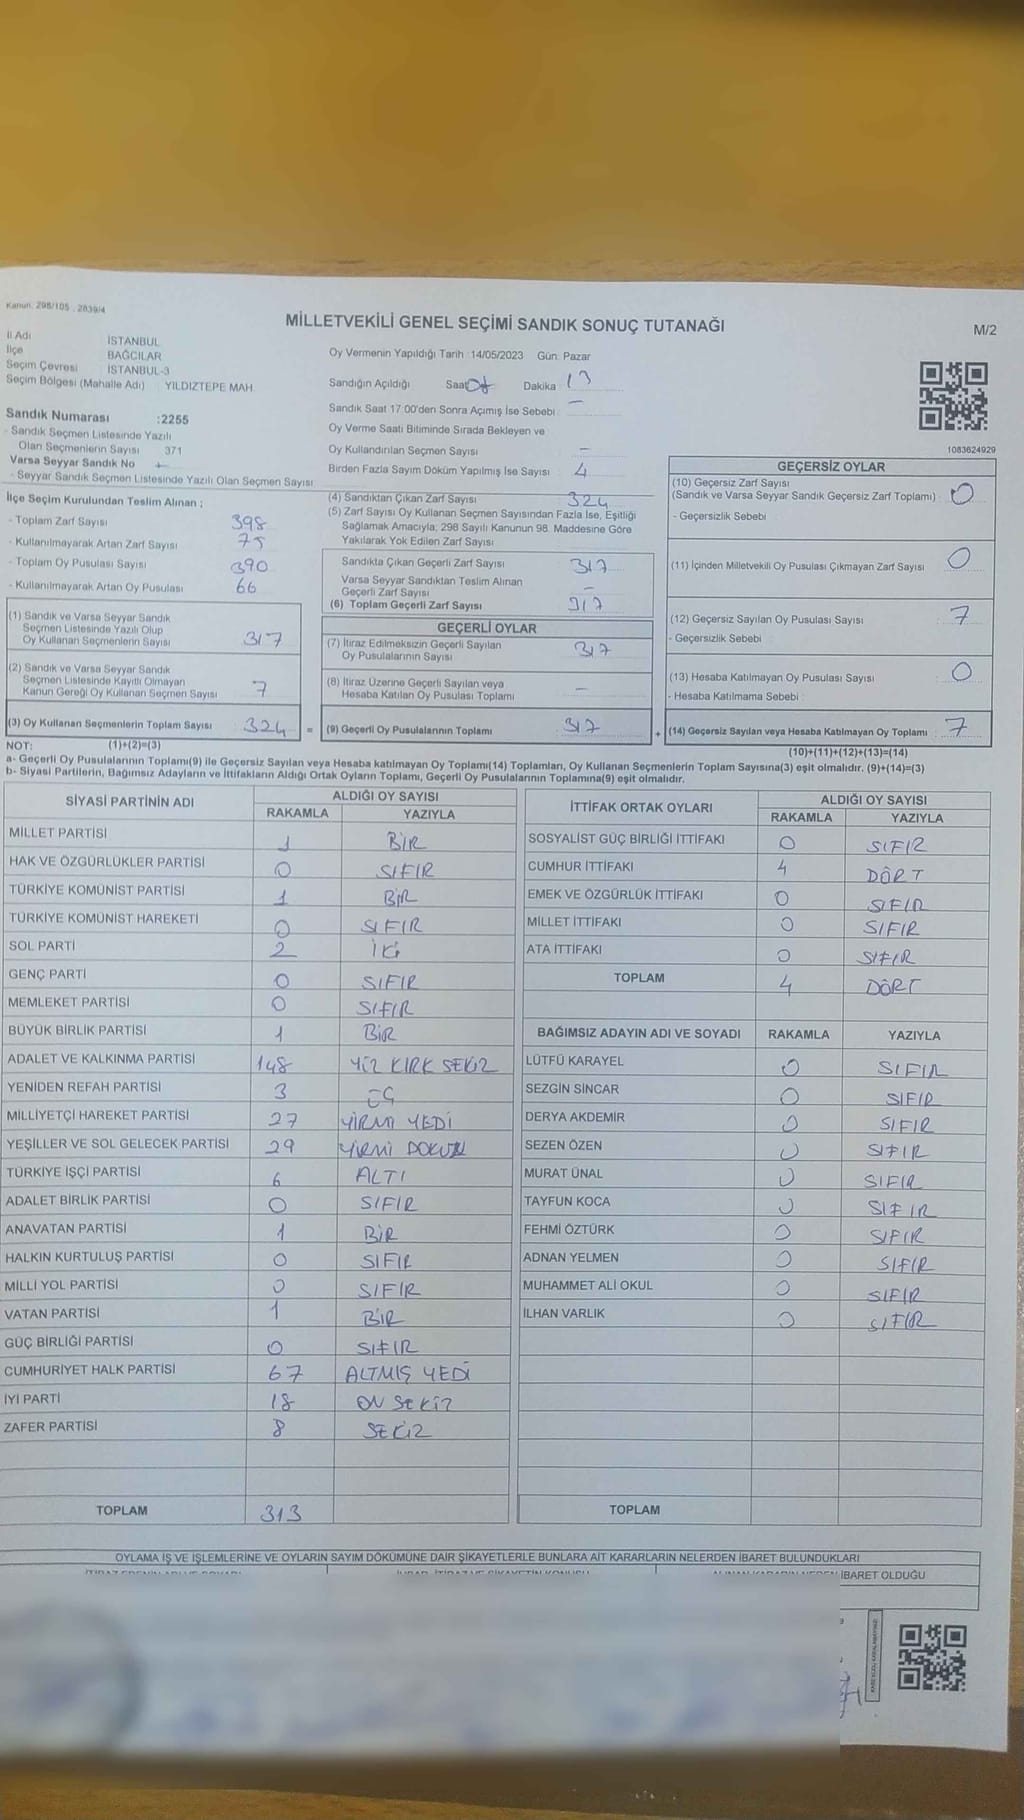 Kanun: 298/105 , 2839/4
MİLLETVEKİLİ GENEL SEÇİMİ SANDIK SONUÇ TUTANAĞI
M/2
İl Adı İSTANBUL
İlçe BAĞCILAR
Seçim Çevresi İSTANBUL-3
Seçim Bölgesi (Mahalle Adı) YILDIZTEPE MAH.
Sandık Numarası :2255
- Sandık Seçmen Listesinde Yazılı
Olan Seçmenlerin Sayısı 371
Varsa Seyyar Sandık No –
- Seyyar Sandık Seçmen Listesinde Yazılı Olan Seçmen Sayısı
Oy Vermenin Yapıldığı Tarih : 14/05/2023 Gün: Pazar
Sandığın Açıldığı Saat Dakika 13
Sandık Saat 17:00'den Sonra Açılmış İse Sebebi –
Oy Verme Saati Bitiminde Sırada Bekleyen ve
Oy Kullandırılan Seçmen Sayısı –
Birden Fazla Sayım Döküm Yapılmış İse Sayısı 4
1083624929
İlçe Seçim Kurulundan Teslim Alınan ;
- Toplam Zarf Sayısı 398
- Kullanılmayarak Artan Zarf Sayısı 75
- Toplam Oy Pusulası Sayısı 390
- Kullanılmayarak Artan Oy Pusulası 66
(1) Sandık ve Varsa Seyyar Sandık
Seçmen Listesinde Yazılı Olup
Oy Kullanan Seçmenlerin Sayısı 317
(2) Sandık ve Varsa Seyyar Sandık
Seçmen Listesinde Kayıtlı Olmayan
Kanun Gereği Oy Kullanan Seçmen Sayısı 7
(3) Oy Kullanan Seçmenlerin Toplam Sayısı 324 =
(4) Sandıktan Çıkan Zarf Sayısı 324
(5) Zarf Sayısı Oy Kullanan Seçmen Sayısından Fazla İse, Eşitliği
Sağlamak Amacıyla; 298 Sayılı Kanunun 98. Maddesine Göre
Yakılarak Yok Edilen Zarf Sayısı
Sandıkta Çıkan Geçerli Zarf Sayısı 317
Varsa Seyyar Sandıktan Teslim Alınan
Geçerli Zarf Sayısı –
(6) Toplam Geçerli Zarf Sayısı 317
GEÇERLİ OYLAR
(7) İtiraz Edilmeksizin Geçerli Sayılan
Oy Pusulalarının Sayısı 317
(8) İtiraz Üzerine Geçerli Sayılan veya
Hesaba Katılan Oy Pusulası Toplamı –
(9) Geçerli Oy Pusulalarının Toplamı 317 +
GEÇERSİZ OYLAR
(10) Geçersiz Zarf Sayısı
(Sandık ve Varsa Seyyar Sandık Geçersiz Zarf Toplamı) : 0
- Geçersizlik Sebebi :
(11) İçinden Milletvekili Oy Pusulası Çıkmayan Zarf Sayısı 0
(12) Geçersiz Sayılan Oy Pusulası Sayısı : 7
- Geçersizlik Sebebi :
(13) Hesaba Katılmayan Oy Pusulası Sayısı : 0
- Hesaba Katılmama Sebebi :
(14) Geçersiz Sayılan veya Hesaba Katılmayan Oy Toplamı : 7
NOT: (1)+(2)=(3) (10)+(11)+(12)+(13)=(14)
a- Geçerli Oy Pusulalarının Toplamı(9) ile Geçersiz Sayılan veya Hesaba katılmayan Oy Toplamı(14) Toplamları, Oy Kullanan Seçmenlerin Toplam Sayısına(3) eşit olmalıdır. (9)+(14)=(3)
b- Siyasi Partilerin, Bağımsız Adayların ve İttifakların Aldığı Ortak Oyların Toplamı, Geçerli Oy Pusulalarının Toplamına(9) eşit olmalıdır.
SİYASİ PARTİNİN ADI ALDIĞI OY SAYISI
RAKAMLA YAZIYLA
MİLLET PARTİSİ 1 BİR
HAK VE ÖZGÜRLÜKLER PARTİSİ 0 SIFIR
TÜRKİYE KOMÜNİST PARTİSİ 1 BİR
TÜRKİYE KOMÜNİST HAREKETİ 0 SIFIR
SOL PARTİ 2 İKİ
GENÇ PARTİ 0 SIFIR
MEMLEKET PARTİSİ 0 SIFIR
BÜYÜK BİRLİK PARTİSİ 1 BİR
ADALET VE KALKINMA PARTİSİ 148 YÜZ KIRK SEKİZ
YENİDEN REFAH PARTİSİ 3 ÜÇ
MİLLİYETÇİ HAREKET PARTİSİ 27 YİRMİ YEDİ
YEŞİLLER VE SOL GELECEK PARTİSİ 29 YİRMİ DOKUZ
TÜRKİYE İŞÇİ PARTİSİ 6 ALTI
ADALET BİRLİK PARTİSİ 0 SIFIR
ANAVATAN PARTİSİ 1 BİR
HALKIN KURTULUŞ PARTİSİ 0 SIFIR
MİLLİ YOL PARTİSİ 0 SIFIR
VATAN PARTİSİ 1 BİR
GÜÇ BİRLİĞİ PARTİSİ 0 SIFIR
CUMHURİYET HALK PARTİSİ 67 ALTMIŞ YEDİ
İYİ PARTİ 18 ON SEKİZ
ZAFER PARTİSİ 8 SEKİZ
TOPLAM 313
İTTİFAK ORTAK OYLARI ALDIĞI OY SAYISI
RAKAMLA YAZIYLA
SOSYALİST GÜÇ BİRLİĞİ İTTİFAKI 0 SIFIR
CUMHUR İTTİFAKI 4 DÖRT
EMEK VE ÖZGÜRLÜK İTTİFAKI 0 SIFIR
MİLLET İTTİFAKI 0 SIFIR
ATA İTTİFAKI 0 SIFIR
TOPLAM 4 DÖRT
BAĞIMSIZ ADAYIN ADI VE SOYADI RAKAMLA YAZIYLA
LÜTFÜ KARAYEL 0 SIFIR
SEZGİN SİNCAR 0 SIFIR
DERYA AKDEMİR 0 SIFIR
SEZEN ÖZEN 0 SIFIR
MURAT ÜNAL 0 SIFIR
TAYFUN KOCA 0 SIFIR
FEHMİ ÖZTÜRK 0 SIFIR
ADNAN YELMEN 0 SIFIR
MUHAMMET ALİ OKUL 0 SIFIR
İLHAN VARLIK 0 SIFIR
TOPLAM
OYLAMA İŞ VE İŞLEMLERİNE VE OYLARIN SAYIM DÖKÜMÜNE DAİR ŞİKAYETLERLE BUNLARA AİT KARARLARIN NELERDEN İBARET BULUNDUKLARI
İBARET OLDUĞU